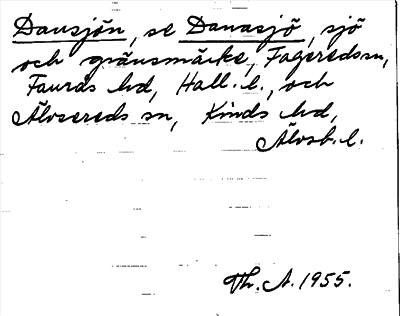 Dansjön, se Danasjö, sjö
och gränsmärke, Fagereds sn,
Faurås hd, Hall. l., och
Älvsereds sn, Kinds hd,
Älvsb. l.
Th. A. 1955.